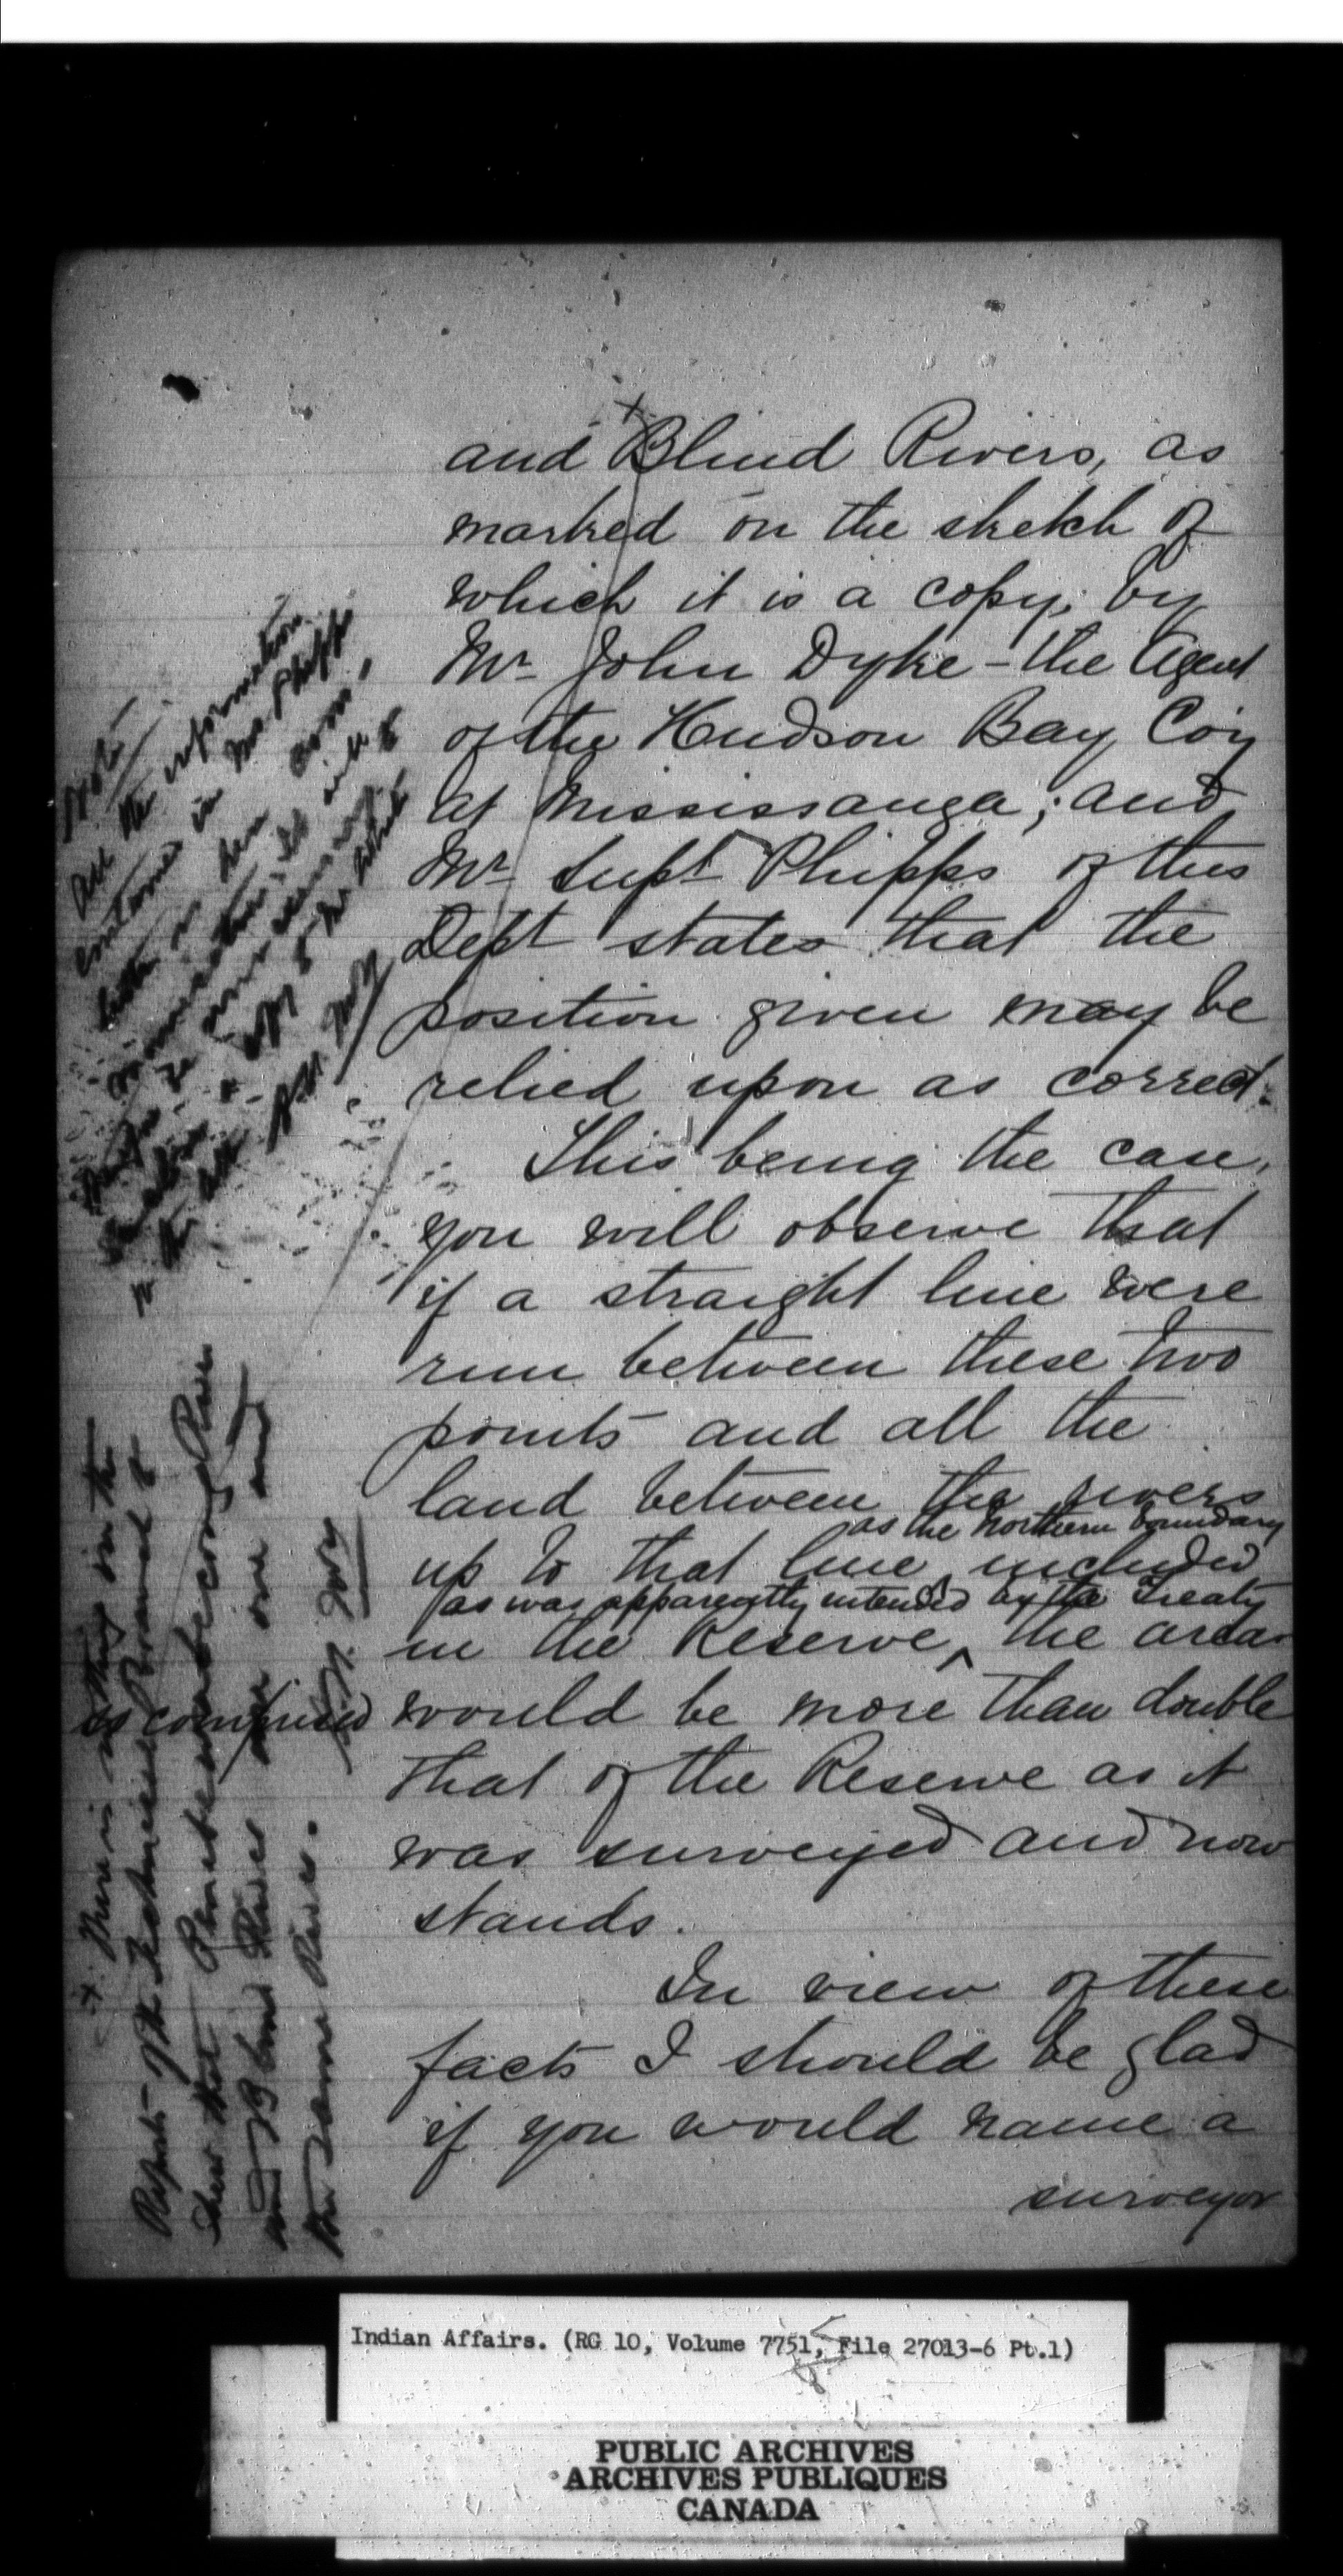 and Blind Rivers, as
marked on the sketch of
which it is a copy, by
Mr John Dyke - the Agent
of the Hudson Bay Coy
at Mississauga; and
Mr Supt Phipps of this
Dept states that the
position given may be
relied upon as correct.
This being the case,
you will observe that
if a straight line were
run between these two
points and all the
land between the rivers
as the Northern boundary
up to that line included
as was apparently intended by the Treaty
in the Reserve, the area
as comprised would be more than double
that of the Reserve as it
was surveyed and now
stands.
In view of these
facts I should be glad
if you would name a
surveyor
Note
All the information
contained in Mr Phipps
x There is nothing in the
Report of the
shew that River
and Blind River are one and
the same River.
Indian Affairs. (RG 10, Volume 7751, File 27013-6 Pt.1)
PUBLIC ARCHIVES
ARCHIVES PUBLIQUES
CANADA